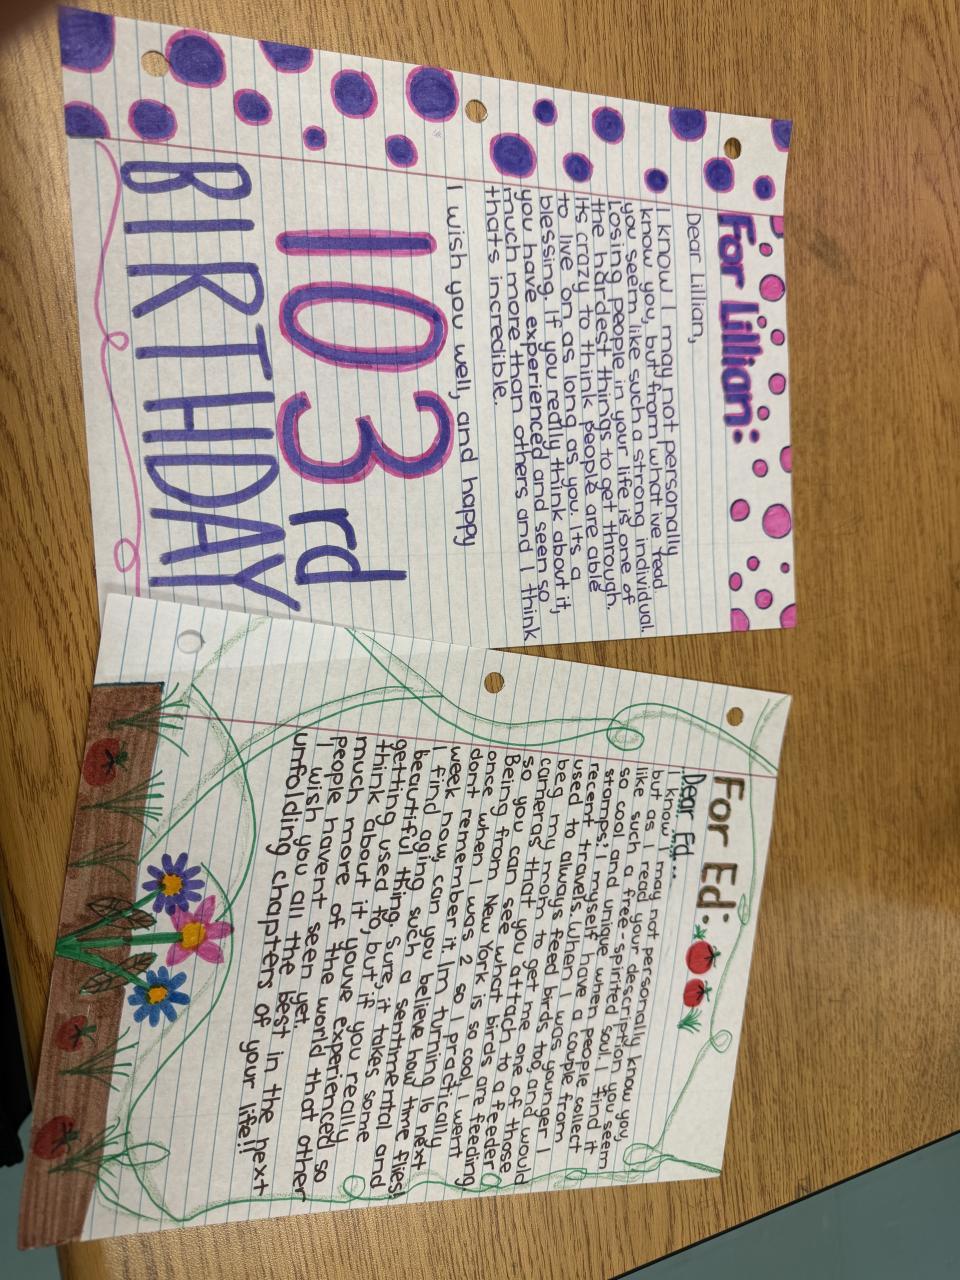 For Lillian:
Dear Lillian,
I know I may not personally
know you, but from what ive read
you seem like such a strong individual.
Losing people in your life is one of
the hardest things to get through.
Its crazy to think people are able
to live on as long as you. Its a
blessing. If you really think about it,
you have experienced and seen so
much more than others and I think
thats incredible.
I wish you well, and happy
103rd
BIRTHDAY
For Ed:
Dear Ed,
I know I may not personally know you,
but as I read your description you seem
like such a free-spirited soul. I find it
so cool and unique when people collect
stamps; I myself have a couple from
recent travels. When I was younger I
used to always feed birds too, and would
beg my mom to get me one of those
cameras that you attach to a feeder
so you can see what birds are feeding.
Being from New York is so cool, I went
once when I was 2 so I practically
dont remember it. Im turning 16 next
week now, can you believe how time flies!
I find aging such a sentimental and
beautiful thing. Sure, it takes some
getting used to, but if you really
think about it, youve experienced so
much more of the world that other
people havent seen yet.
I wish you all the best in the next
unfolding chapters of your life!!